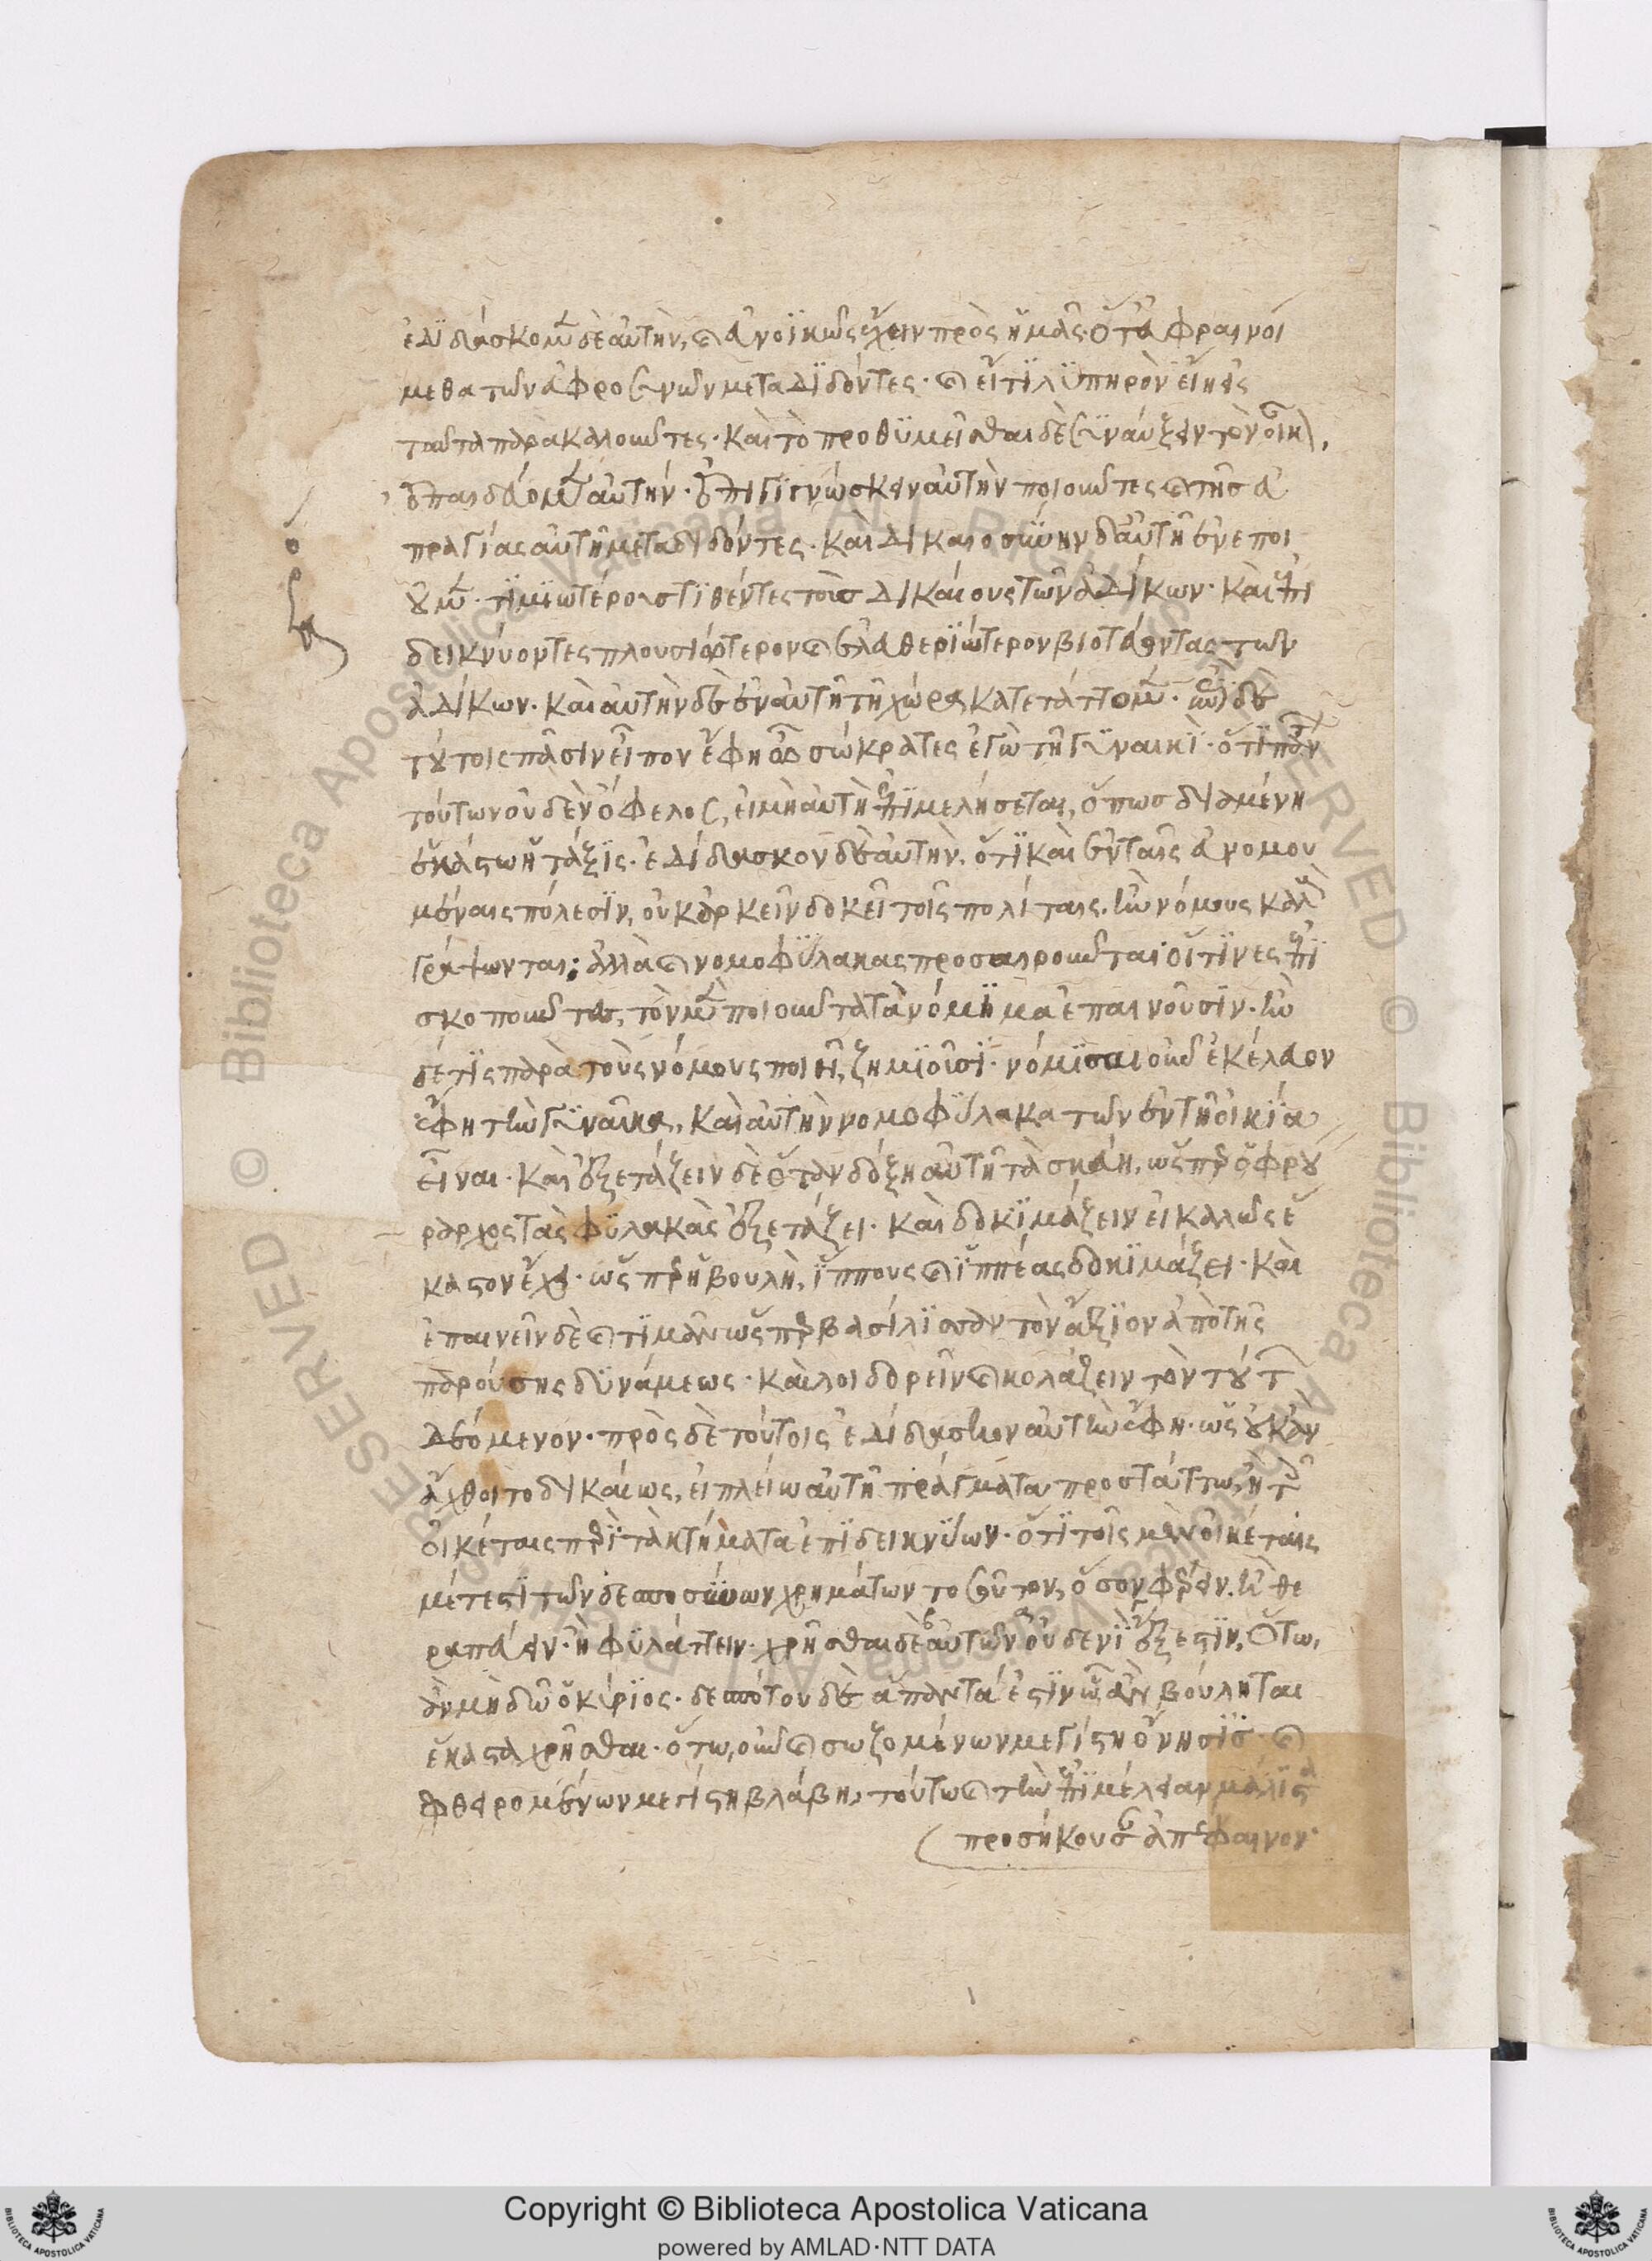 ἐδιδάσκομεν δὲ αὐτὴν, καὶ εὐνοϊκῶς ἔχειν πρὸς ἡμᾶς· ὅτ' εὐφραινοί
μεθα τῶν εὐφροσυνῶν μεταδιδόντες· καὶ εἴ τι λυπηρὸν εἴη εἰς
ταῦτα παρακαλοῦντες· καὶ τὸ προθυμεῖσθαι δὲ συναύξειν τὸν οἶκον,
ἐπαιδεύομεν αὐτήν· ἐπιγιγνώσκειν αὐτὴν ποιοῦντες καὶ τῆς εὐ
πραγίας αὐτῆ μεταδιδόντες· καὶ δικαιοσύνην δ' αὐτῆ ἐνεποι
οῦμεν· τιμιωτέρους τιθέντες τοὺς δικαίους τῶν ἀδίκων· καὶ ἐπι
δεικνύοντες πλουσιώτερον καὶ ἐλευθεριώτερον βιοτεύοντας τῶν
ἀδίκων· καὶ αὐτὴν δὲ ἐν αὐτῆ τῆ χώρα κατετάττομεν· ἐπὶ δὲ
τούτοις πᾶσιν εἶπον ἔφη ὦ σώκρατες ἐγὼ τῆ γυναικὶ· ὅτι πάντων
τούτων οὐδὲν ὄφελος, εἰ μὴ αὐτὴ ἐπιμελήσεται, ὅπως διαμένη
ἑκάστω ἡ τάξις· ἐδίδασκον δὲ αὐτὴν, ὅτι καὶ ἐν ταῖς εὐνομου
μέναις πόλεσιν, οὐκ ἀρκεῖν δοκεῖ τοῖς πολίταις, ἢν νόμους καλοὺς
γράψωνται; ἀλλὰ καὶ νομοφύλακας προσαιροῦνται οἵτινες ἐπι
σκοποῦντες, τὸν μὲν ποιοῦντα τὰ νόμιμα ἐπαινοῦσιν· ἢν
δέ τις παρὰ τοὺς νόμους ποιῆ, ζημιοῦσι· νόμισαι οὖν ἐκέλευον
ἔφη τὴν γυναῖκα, καὶ αὐτὴν νομοφύλακα τῶν ἐν τῆ οἰκία
εἶναι· καὶ ἐξετάζειν δὲ ὅταν δόξη αὐτῆ τὰ σκεύη, ὥσπερ ὁ φρού
ραρχος τὰς φυλακὰς ἐξετάζει· καὶ δοκιμάζειν εἰ καλῶς ἕ
καστον ἔχει· ὥσπερ ἡ βουλὴ, ἵππους καὶ ἱππέας δοκιμάζει· καὶ
ἐπαινεῖν δὲ καὶ τιμᾶν ὥσπερ βασίλισσαν τὸν ἄξιον ἀπὸ τῆς
παρούσης δυνάμεως· καὶ λοιδορεῖν καὶ κολάζειν τὸν τούτων
δεόμενον· πρὸς δὲ τούτοις ἐδίδασκον αὐτὴν ἔφη· ὡς οὐκ ἂν
ἄχθοιτο δικαίως, εἰ πλείω αὐτῆ πράγματα προστάττω, ἢ τοῖς
οἰκέταις περὶ τὰ κτήματα ἐπιδεικνύων· ὅτι τοῖς μὲν οἰκέταις
μέτεστι τῶν δεσποσύνων χρημάτων τοσοῦτον, ὅσον φέρειν, ἢ θε
ραπεύειν· ἢ φυλάττειν· χρῆσθαι δὲ αὐτῶν οὐδενὶ ἔξεστιν, ὅτω,
ἂν μὴ δῶ ὁ κύριος· δεσπότου δὲ ἅπαντά ἐστιν ὧ ἂν βούληται
ἕκαστα χρῆσθαι· ὅτω, οὖν καὶ σωζομένων μεγίστη ὄνησις· καὶ
φθειρομένων μεγίστη βλάβη, τούτω καὶ τὴν ἐπιμέλειαν μάλιστα
προσήκουσαν ἀπέφαινον·
Copyright © Biblioteca Apostolica Vaticana
powered by AMLAD·NTT DATA